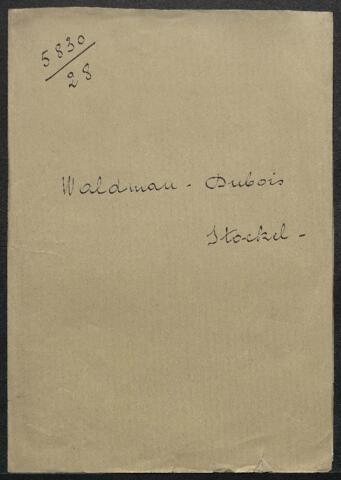 5830
28
Waldman - Dubois
Stockel -